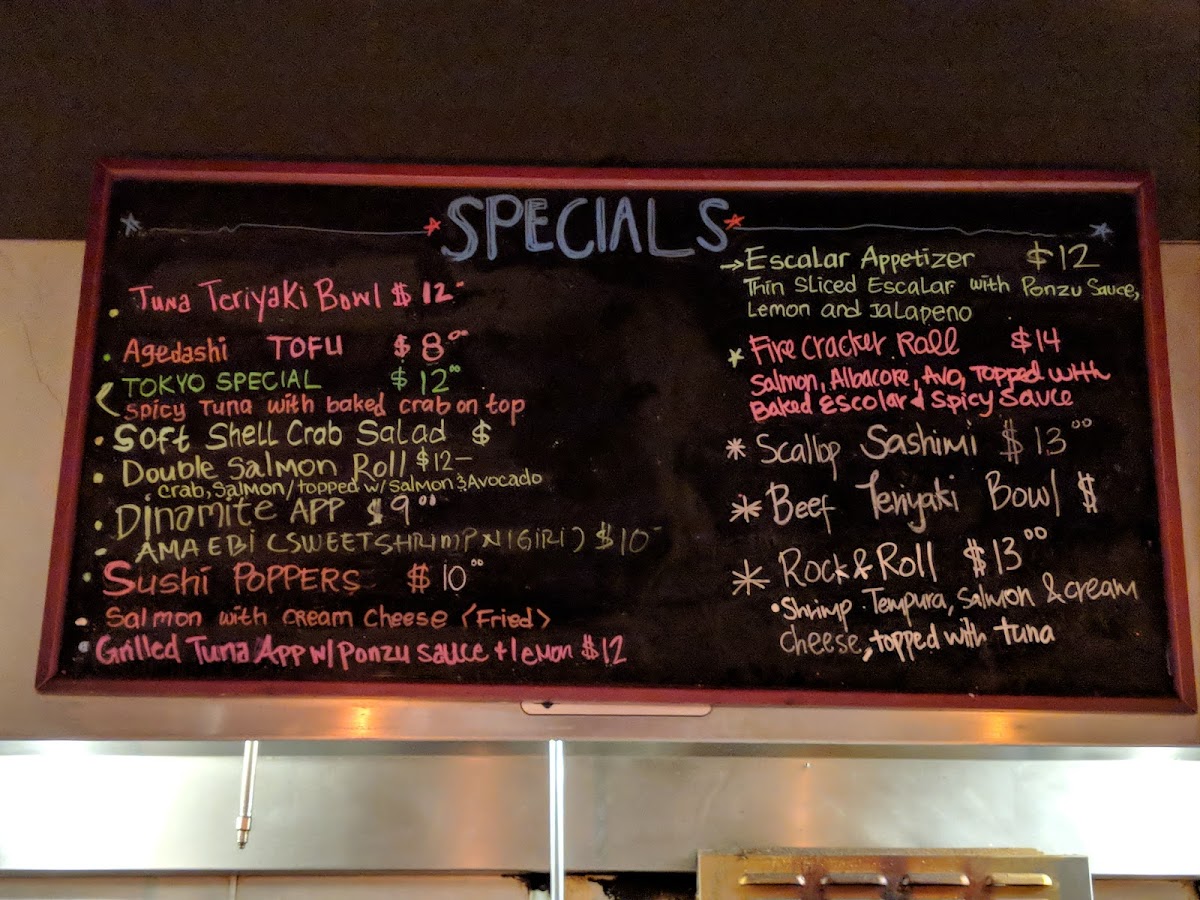 SPECIALS
Tuna Teriyaki Bowl $12-
Agedashi TOFU $8⁰⁰
TOKYO SPECIAL $12⁰⁰
Spicy Tuna with baked crab on top
Soft Shell Crab Salad $
Double Salmon Roll $12-
crab, Salmon/topped w/ Salmon & Avocado
Dinamite APP $9⁰⁰
AMA EBI (SWEET SHRIMP NIGIRI) $10-
Sushi POPPERS $10⁰⁰
Salmon with cream cheese <Fried>
Grilled Tuna App w/ Ponzu sauce + lemon $12
→Escalar Appetizer $12
Thin Sliced Escalar with Ponzu Sauce,
Lemon and Jalapeno
Fire Cracker Roll $14
Salmon, Albacore, Avo, Topped with
Baked Escolar & Spicy Sauce
* Scallop Sashimi $13⁰⁰
* Beef Teriyaki Bowl $
* Rock & Roll $13⁰⁰
• Shrimp Tempura, Salmon & cream
cheese, topped with tuna